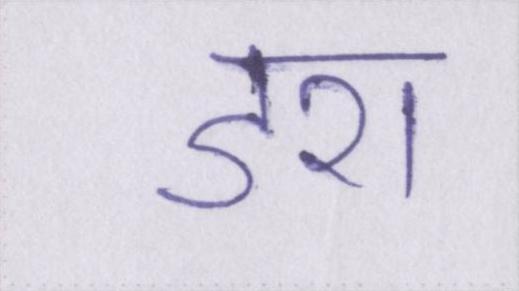 डरा